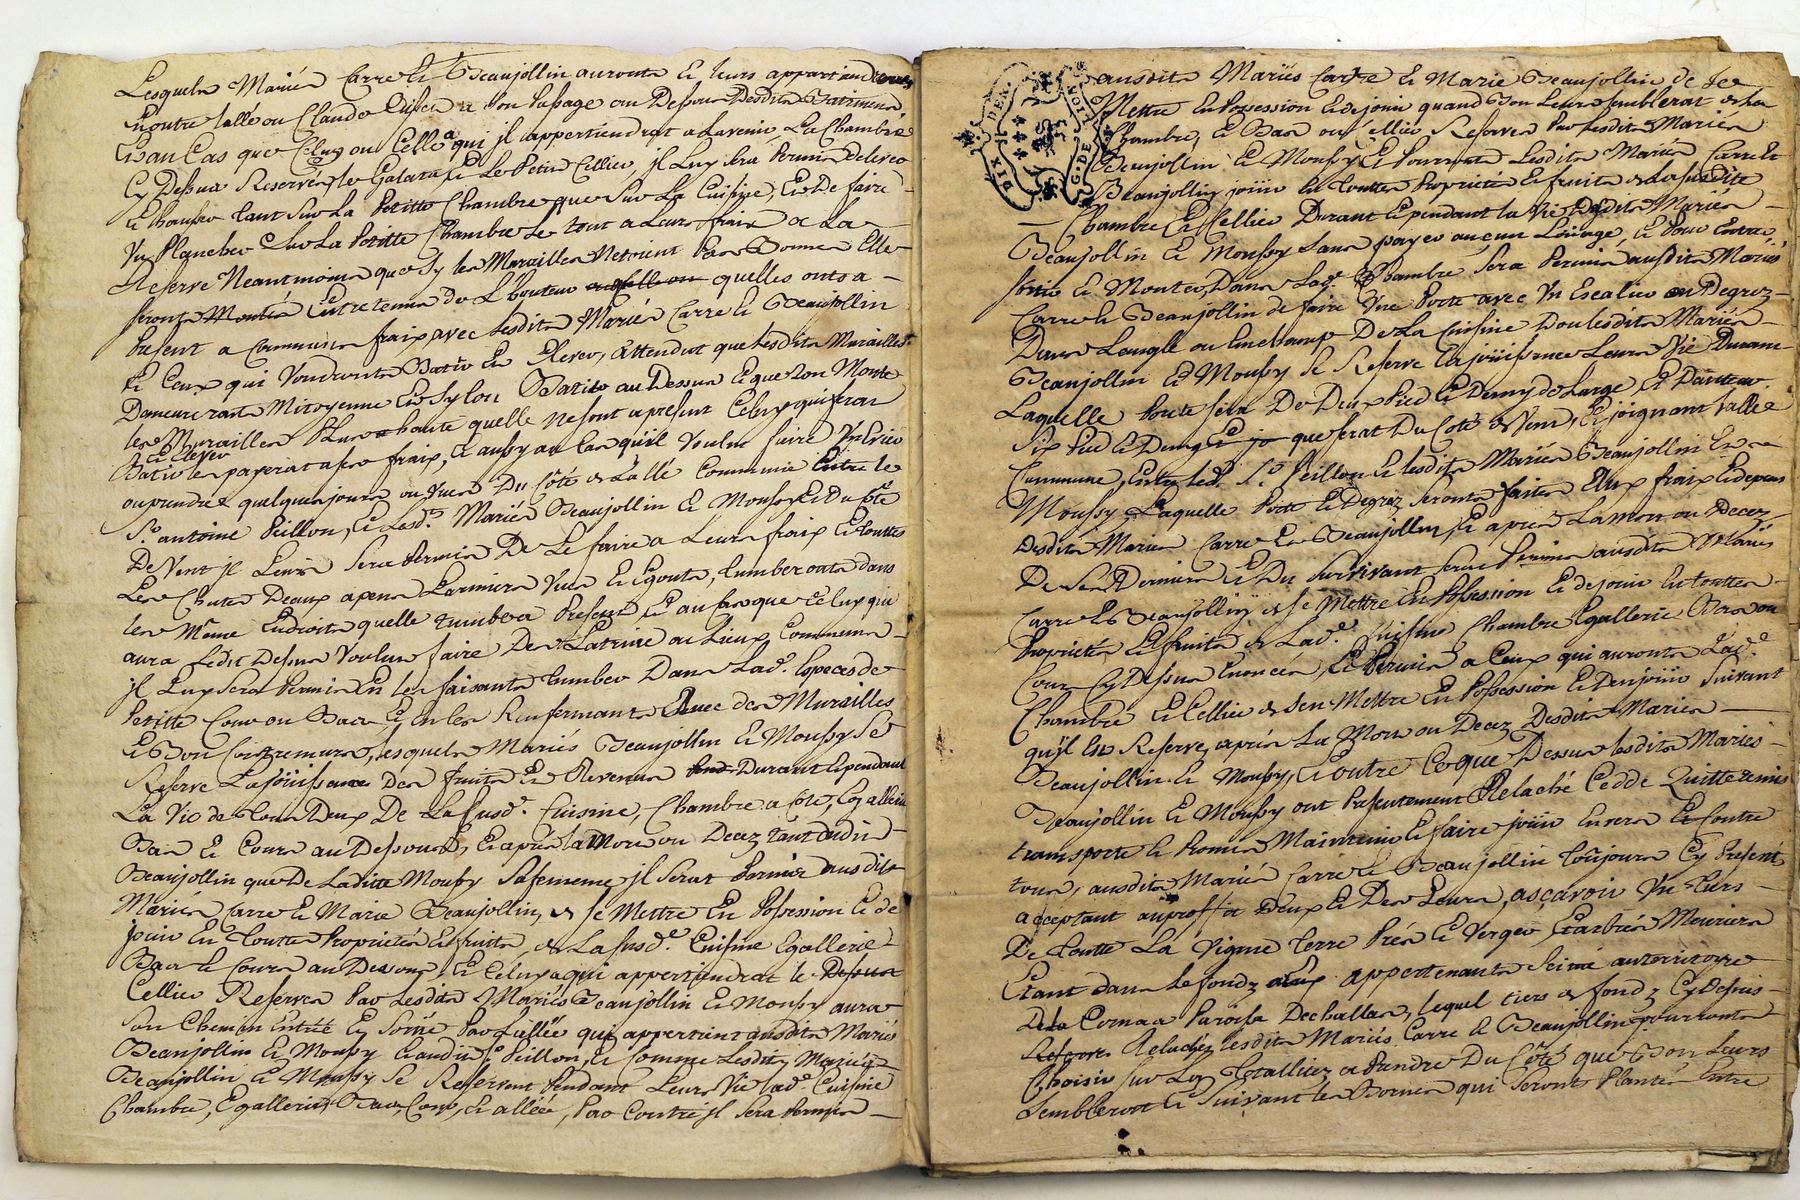 Lesquels Mariés Carre et Beaujollin auronts et leurs appartiendronts
En outre lallé ou Claude a son Passage au Dessous Desdits Batiments
Et au Cas que Celuy ou Celle a qui jl appartiendrat a Lavenir La Chambre
Cy Dessus Reservéz le Galata et Le Petit Cellier jl Luy Sera Permis Delever
Et hausser tant Sur La Petitte Chambre que Sur La Cuisine, Et De faire
Un Plancher Sur La Petitte Chambre Le tout a Leurs fraix a La
Reserve Neantmoins que Sy les Murailles Netoient Pas Bonnes Elle
seronts Entretenus de L'hauteur quelles onts a
Present a Communs fraix avec Lesdits Mariés Carre et Beaujollin
Et Ceux qui Voudronts Batir Et Elever, Attendut que Lesdits Murailles
Demeureronts Mitoyenne Et Sy lon Batit au Dessus Et que Lon Monte
les Murailles Plus haute quelle Ne sont a present Celuy qui ferat
et Elever
Batir les payerat a ses fraix, Et aussy au Cas quil Voulut faire
ou prendre quelques jours ou Vues Du Coté de Lallé Commune Entre le
Sr. antoine Peillon, Et Lesd.ts Mariés Beaujollin et Moussy Et Du Coté
De Vent jl Leurs Sera Permis De Le faire a Leurs fraix Et touttes
Les Chutes Deaux apens Larmiers Vues Et Egouts, tumberonts dans
les Meme Endroits quelle tumbera Present Et au Cas que Celuy qui
aura Ledit Dessus Voulut faire Des Latrine ou Lieux Communs
jl Luy Sera Permis En les faisants tumber Dans Lad.e Especes de
Petitte Cour ou Bacs Et En les Renfermants Avec des Murailles
Et Bon Contremurs, lesquels Mariés Beaujollin Et Moussy Se
Reserve La jouissance Des fruits Et Revenus Durant Et pendant
La Vie de tous Deux De La susd.e Cuisine, Chambre a Coté, Egallerie
Bas Et Cours au Dessous, Et après la Mort ou Decez tant dudit
Beaujollin que De Laditte Moussy Sa femme jl Serat Permis ausdits
Mariés Carre Et Marie Beaujollin, de Se Mettre En Possession Et de
jouir En Toutte Proprietés Et fruits, de La susd.e Cuisine Egallerie
Bacs Et Cours au Dessous Et Celuy a qui appartiendrat le Dessus
Cellier Reservez Par Lesdits Mariés Beaujollin Et Moussy aura
Son Chemin Entrée Et Sortie Par Lallée qui appartient ausdits Mariés
Beaujollin Et Moussy Et audit Sr. Peillon, Et Comme Lesdits Mariés
Beaujollin Et Moussy Se Reservent Pendant Leurs Vie Lad.e Cuisine
Chambre, Egallerie, Bacs, Cours, Et allée, Par Contre jl Sera Permis
DIX DEN.
G. DE LION
ausdits Mariés Carre Et Marie Beaujollin de Se
Mettre En Possession Et de jouir quand Bon Leurs Semblerat de La
Chambre, Et Bas ou Cellier Reservez Par Lesdits Mariés
Beaujollin Et Moussy Et Pourronts Lesdits Mariés Carre Et
Beaujollin jouir En Toutte Proprietés Et fruits de La susditte
Chambre Et Cellier Durant Et pendant la Vie Desdits Mariés
Beaujollin Et Moussy Sans payer aucun Loüage, Et Pour Entrer
Sortir Et Monter, Dans Lad.e Chambre Sera Permis ausdits Mariés
Carre Et Beaujollin de faire Une Porte avec Un Escalier ou Degrez
Dans Langle ou Enchamp De La Cuisine Dont lesdits Mariés
Beaujollin Et Moussy Se Reserve La jouissance Leurs Vie Durant
Laquelle Porte Sera De Deux Pied Et Demy de Large, Et D'auteur
Six Pied Et Demy que Serat Du Coté de Vent, Et joignant Lallée
Commune, Entre led. Sr. Peillon Et lesdits Mariés Beaujollin Et
Moussy Laquelle Porte Et Degrez Seronts faites Aux fraix Et depens
Desdits Mariés Carre Et Beaujollin, Et apres La Mort ou Decez
De Ses Derniers Et Du Survivant Sera Permis ausdits Mariés
Carre Et Beaujollin de Se Mettre En Possession Et de jouir En touttes
Proprietés Et fruits de Lad.e Cuisine Chambre Egallerie Bacs ou
Cour Cy Dessus Enoncés, Et Permis a Ceux qui auronts Lad.e
Chambre Et Cellier de Sen Mettre En Possession Et Den jouir Suivant
quil Est Reserve, après La Mort ou Decez Desdits Mariés
Beaujollin Et Moussy, Et outre Ce que Dessus lesdits Mariés
Beaujollin Et Moussy ont Presentement Relaché Cedde Quitte remis
transporte Et Promis Maintenir Et faire jouir Envers Et Contre
tous, ausdits Mariés Carre Et Beaujollin Toujours Cy Present
acceptant au proffit Deux Et Des Leurs, asçavoir Un tiers
De Toutte La Vigne Terre Prés Et Verger, Et arbres Meuriers
Etant dans Le fondz appartenants Scitué au territoire
De la Cornaz Paroisse De challes, lequel tiers de fondz Cy Dessus
Relachéz lesdits Mariés Carre Et Beaujollin pourronts
Choisir Sur Les Totallitez a Prendre Du Coté que Bon Leurs
Semblerat Et Suivant les Bornes qui Seront Plantés Entre